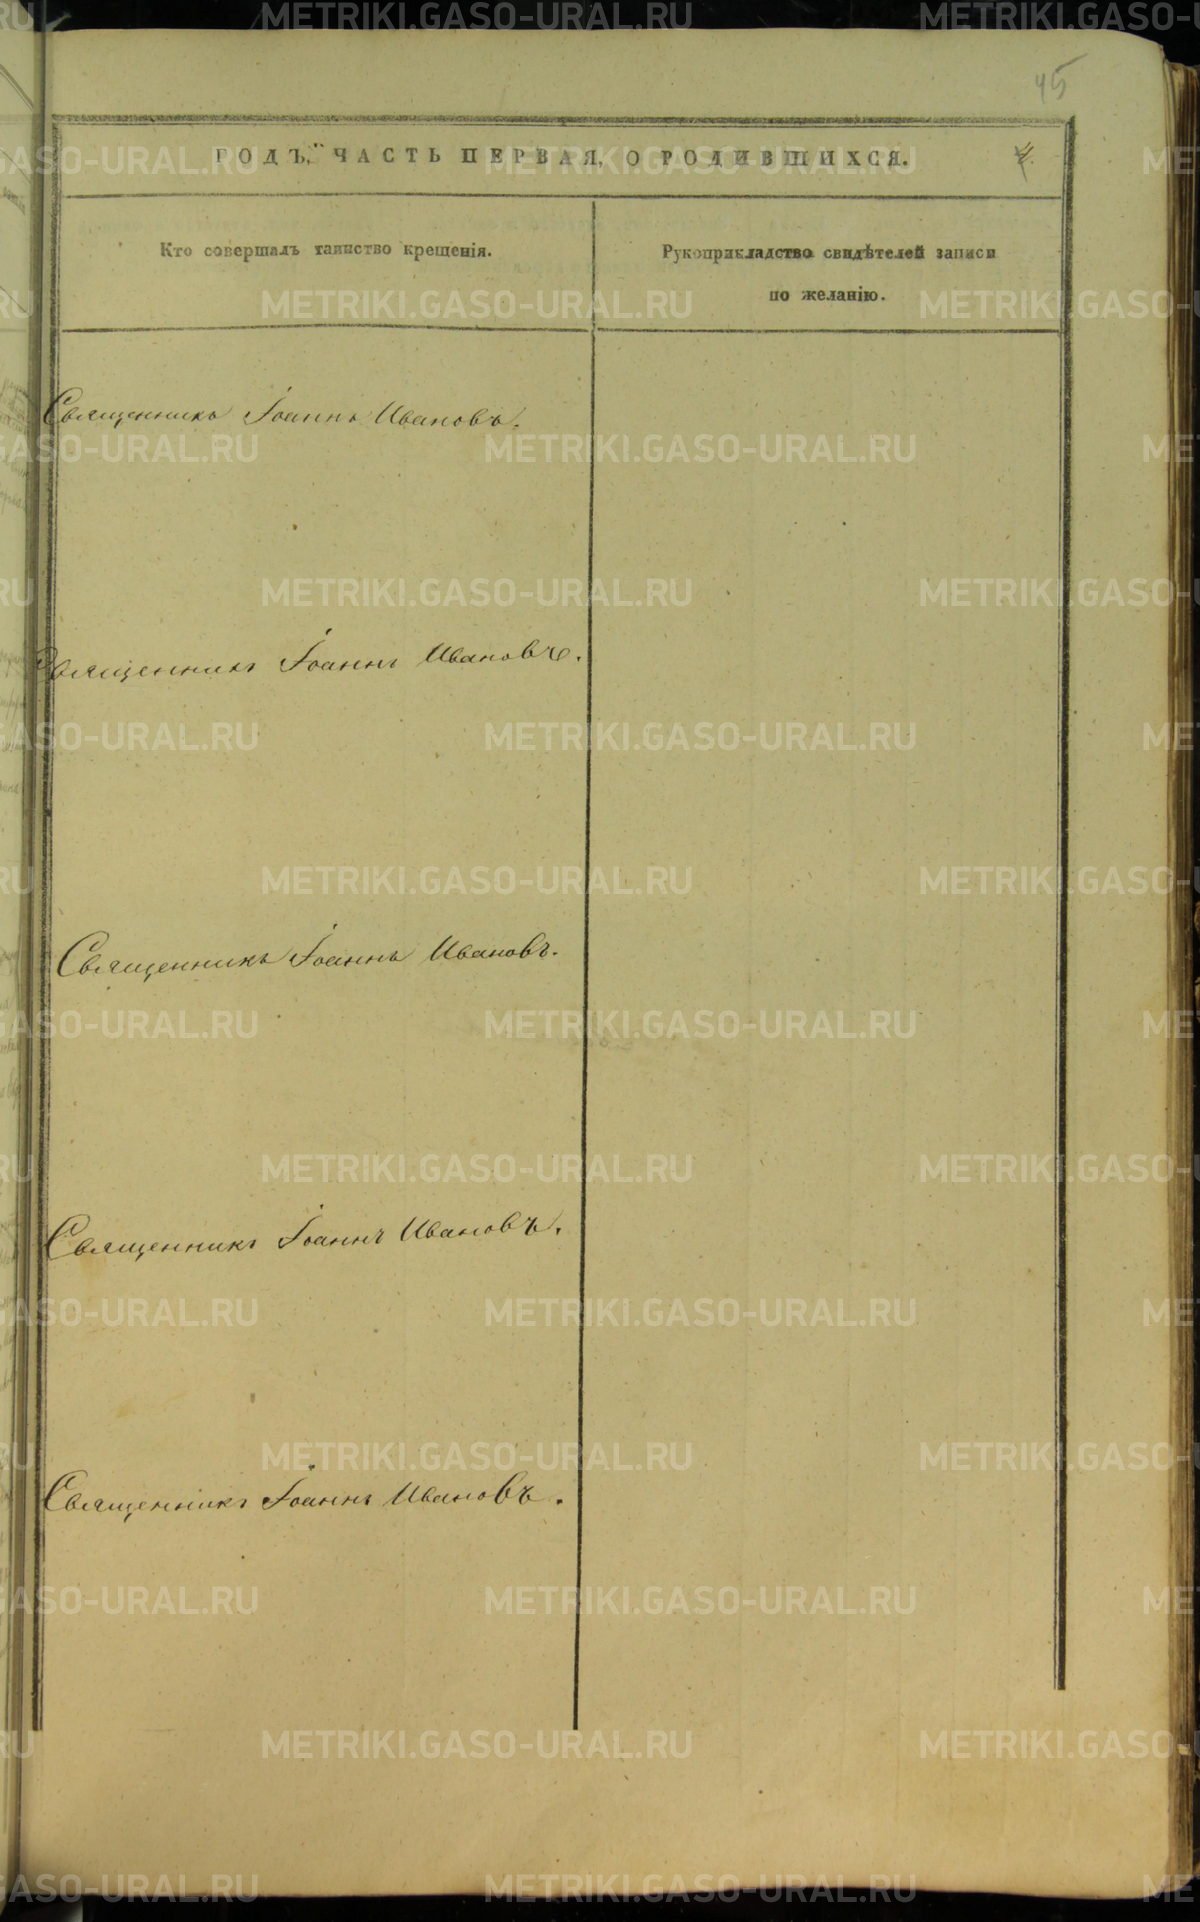 45
ГОДЪ, ЧАСТЬ ПЕРВАЯ, О РОДИВШИХСЯ.
Кто совершалъ таинство крещенія.
Рукоприкладство свидѣтелей записи
по желанію.
Священникъ Іоаннъ Ивановъ.
Священникъ Іоаннъ Ивановъ.
Священникъ Іоаннъ Ивановъ.
Священникъ Іоаннъ Ивановъ.
Священникъ Іоаннъ Ивановъ.
METRIKI.GASO-URAL.RU